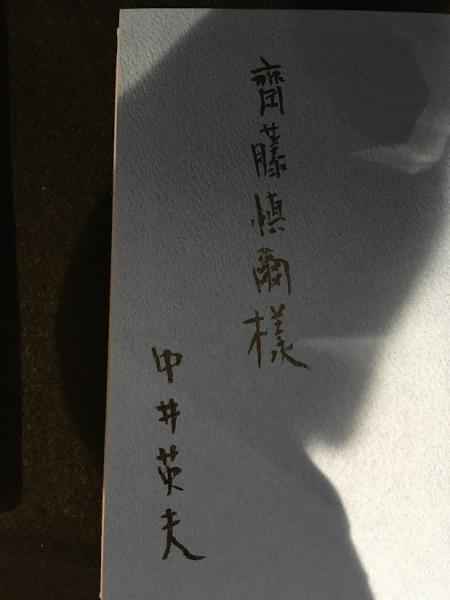 齋藤慎爾様
中井英夫